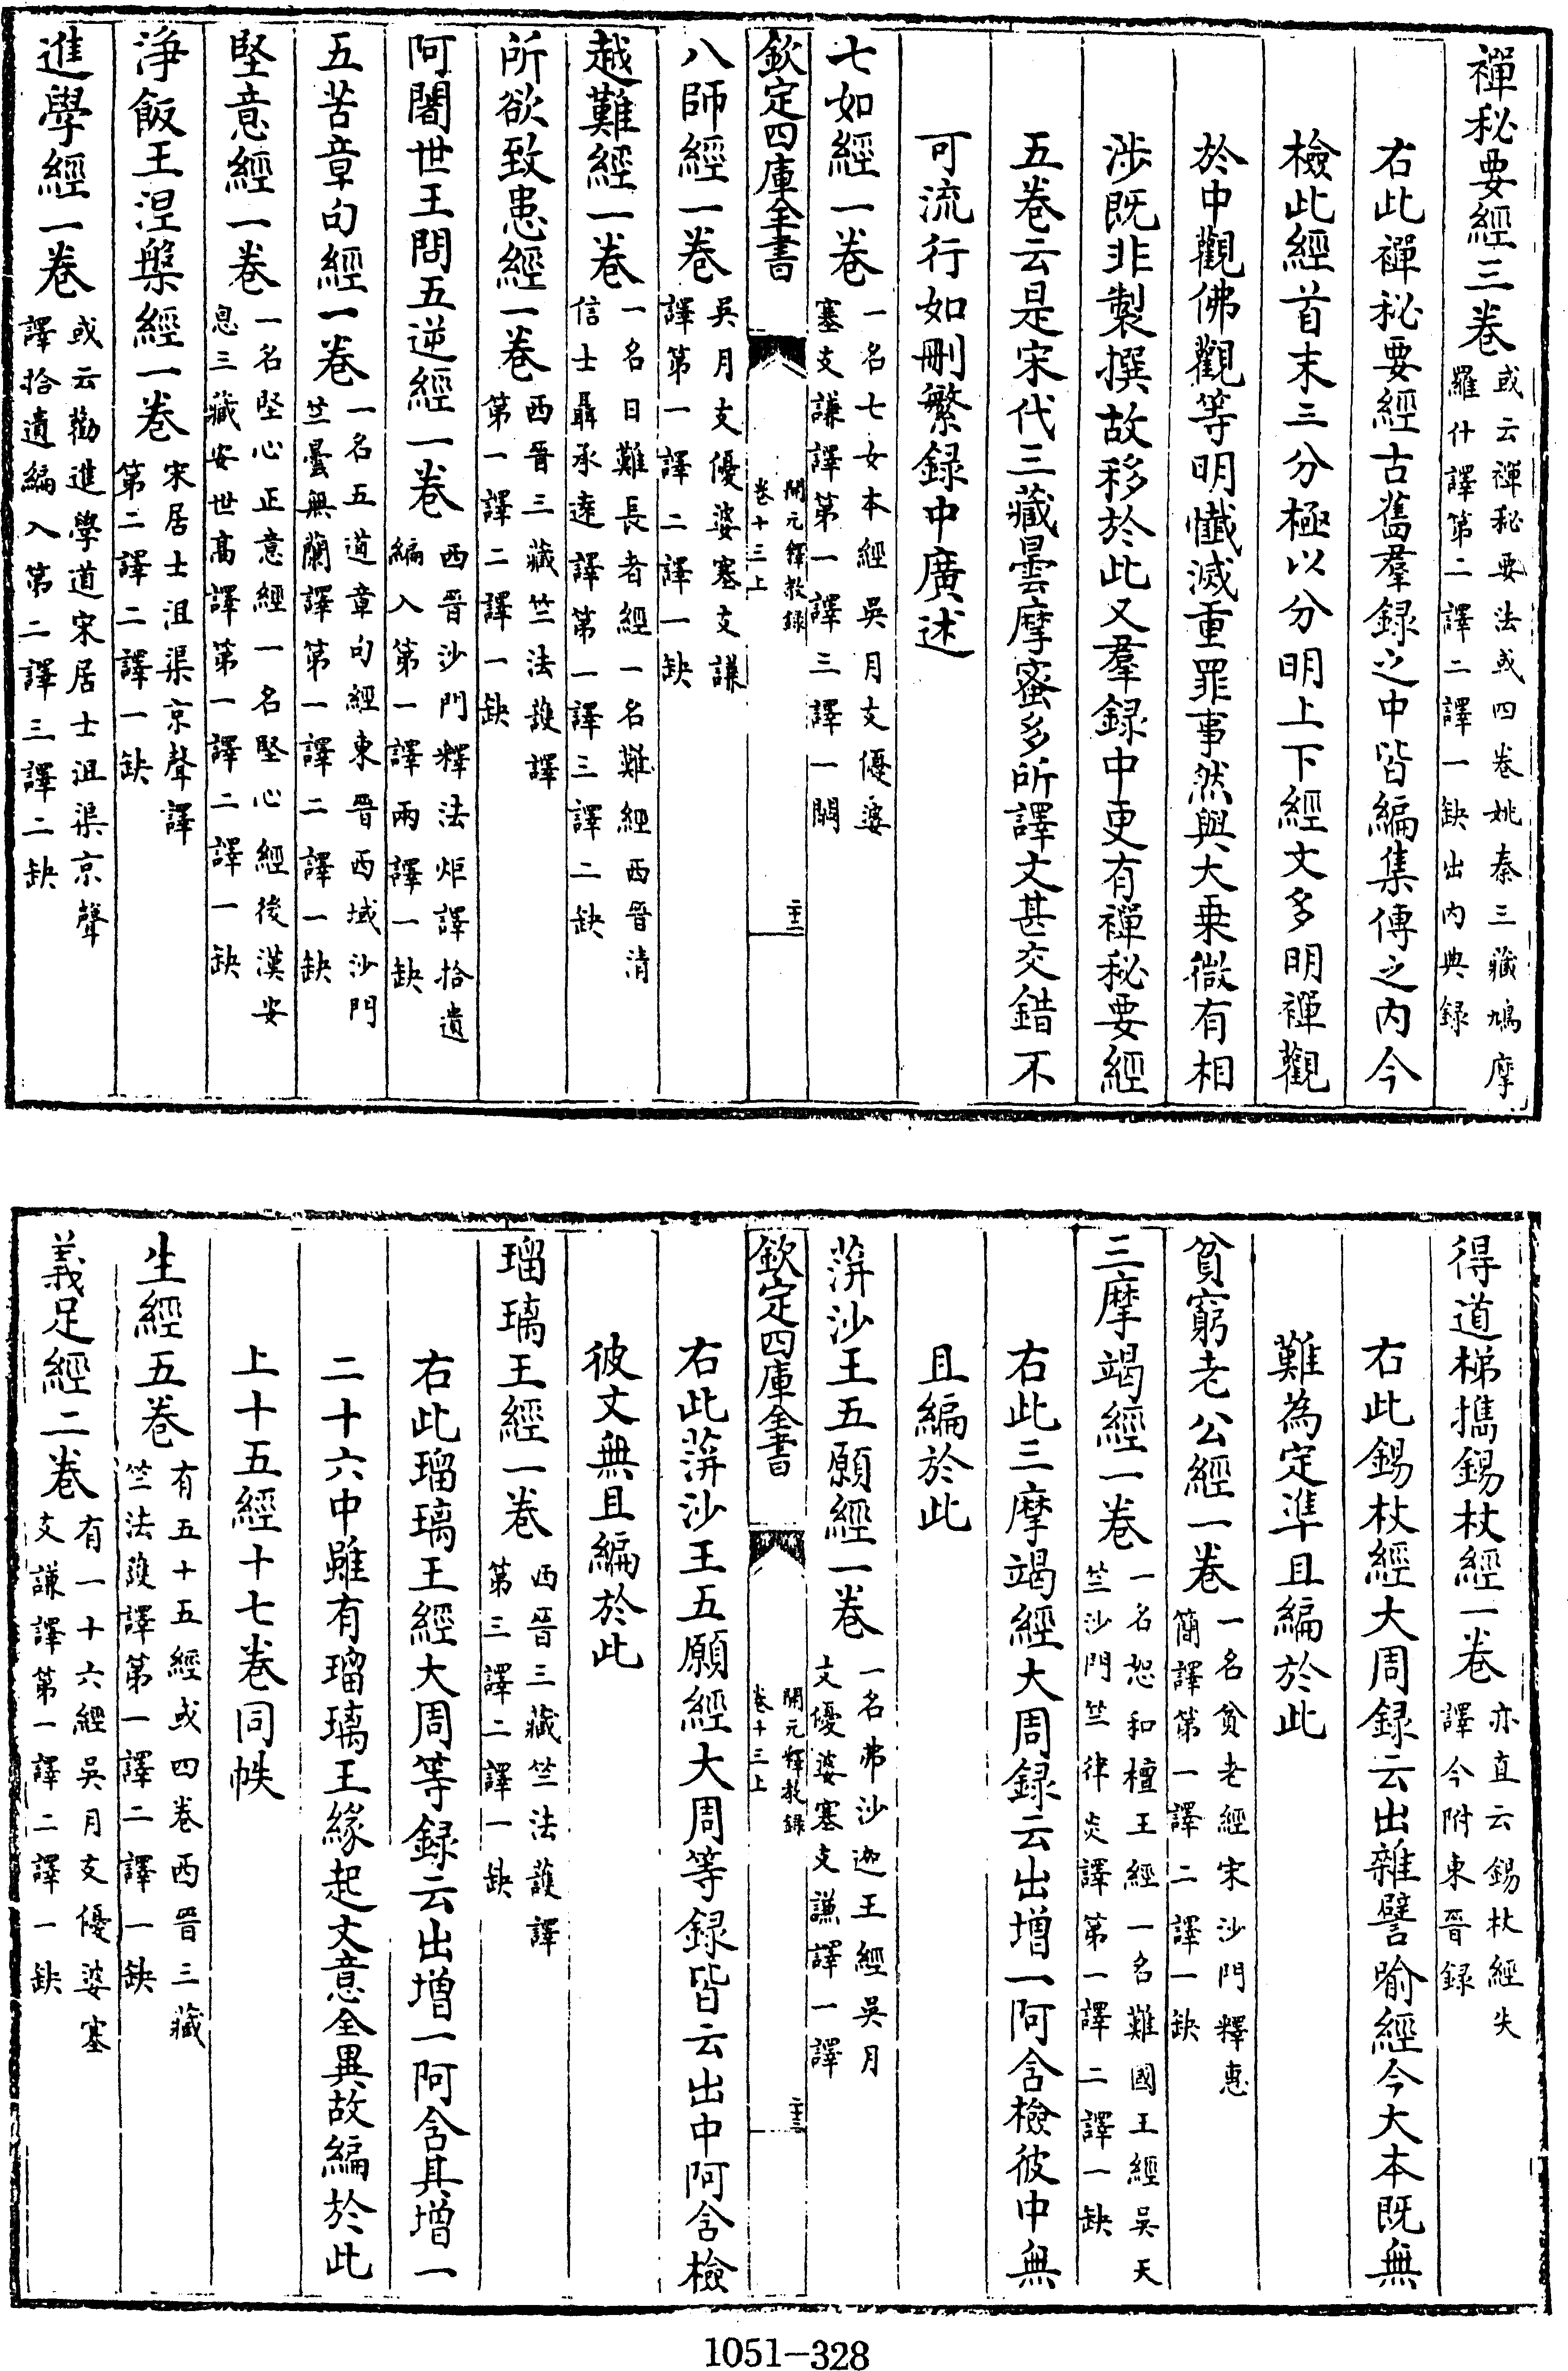 禪秘要經三卷或云禪秘要法或四卷姚秦三藏鳩摩羅什譯第二譯二譯一缺出内典録
右此禪秘要經古舊羣録之中皆編集傳之内今
檢此經首末三分極以分明上下經文多明禪觀
於中觀佛觀等明懺滅重罪事然與大乗微有相
涉既非製撰故移於此又羣録中更有禪秘要經
五卷云是宋代三藏曇摩蜜多所譯文甚交錯不
可流行如刪繁録中廣述
七如經一卷一名七女本經吳月支優婆塞支謙譯第一譯三譯一闕
欽定四庫全書
開元釋教録
卷十三上
二十二
八師經一卷吳月支優婆塞支謙譯第一譯二譯一缺
越難經一卷一名日難長者經一名難經西晉清信士聶承逺譯第一譯三譯二缺
所欲致患經一卷西晉三藏竺法護譯第一譯二譯一缺
阿闍世王問五逆經一卷西晉沙門釋法炬譯拾遺編入第一譯兩譯一缺
五苦章句經一卷一名五道章句經東晉西域沙門竺曇無蘭譯第一譯二譯一缺
堅意經一卷一名堅心正意經一名堅心經後漢安息三藏安世高譯第一譯二譯一缺
淨飯王涅槃經一卷宋居士沮渠京聲譯第二譯二譯一缺
進學經一卷或云勸進學道宋居士沮渠京聲譯拾遺編入第二譯三譯二缺
得道梯㩦錫杖經一卷亦直云錫杖經失譯今附東晉録
右此錫杖經大周録云出雜譬喻經今大本既無
難為定準且編於此
貧窮老公經一卷一名貧老經宋沙門釋惠簡譯第一譯二譯一缺
三摩竭經一卷一名恕和檀王經一名難國王經吳天竺沙門竺律炎譯第一譯二譯一缺
右此三摩竭經大周録云出增一阿含檢彼中無
且編於此
蓱沙王五願經一卷一名弗沙迦王經吳月支優婆塞支謙譯一譯
欽定四庫全書
開元釋教録
卷十三上
二十三
右此蓱沙王五願經大周等録皆云出中阿含檢
彼文無且編於此
瑠璃王經一卷西晉三藏竺法護譯第三譯二譯一缺
右此瑠璃王經大周等録云出增一阿含具增一
二十六中雖有瑠璃王緣起文意全異故編於此
上十五經十七卷同帙
生經五卷有五十五經或四卷西晉三藏竺法護譯第一譯二譯一缺
義足經二卷有一十六經吳月支優婆塞支謙譯第一譯二譯一缺
1051—328